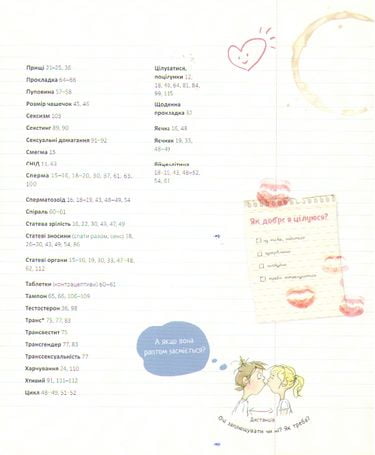 Прищі 21–25, 36
Прокладка 64–66
Пуповина 57–58
Розмір чашечок 45, 46
Сексизм 103
Секстинг 89, 90
Сексуальні домагання 91–92
Смегма 15
СНІД 11, 63
Сперма 15–16, 18–20, 30, 37, 61, 63,
100
Сперматозоїд 16, 18–19, 43, 48–49, 54
Спіраль 60–61
Статева зрілість 16, 22, 30, 43, 47, 49
Статеві зносини (спати разом, секс) 18,
26–30, 43, 49, 54, 86
Статеві органи 15–16, 19, 30, 33, 47–48,
62, 112
Таблетки (контрацептиви) 60–61
Тампон 65, 66, 106–109
Тестостерон 36, 98
Транс* 75, 77, 83
Трансвестит 75
Трансгендер 77, 83
Транссексуальність 77
Харчування 24, 110
Хтивий 91, 111–112
Цикл 48–49, 51–52
Цілуватися,
поцілунки 12,
18, 49, 64, 81, 84,
99, 115
Щоденна
прокладка 67
Яєчка 16, 48
Яєчник 19, 35,
48–49
Яйцеклітина
18–21, 43, 48–52,
54, 61
Як добре я цілуюся?
А якщо вона
раптом засміється?
Дистанція
Очі заплющувати чи ні? Як треба?